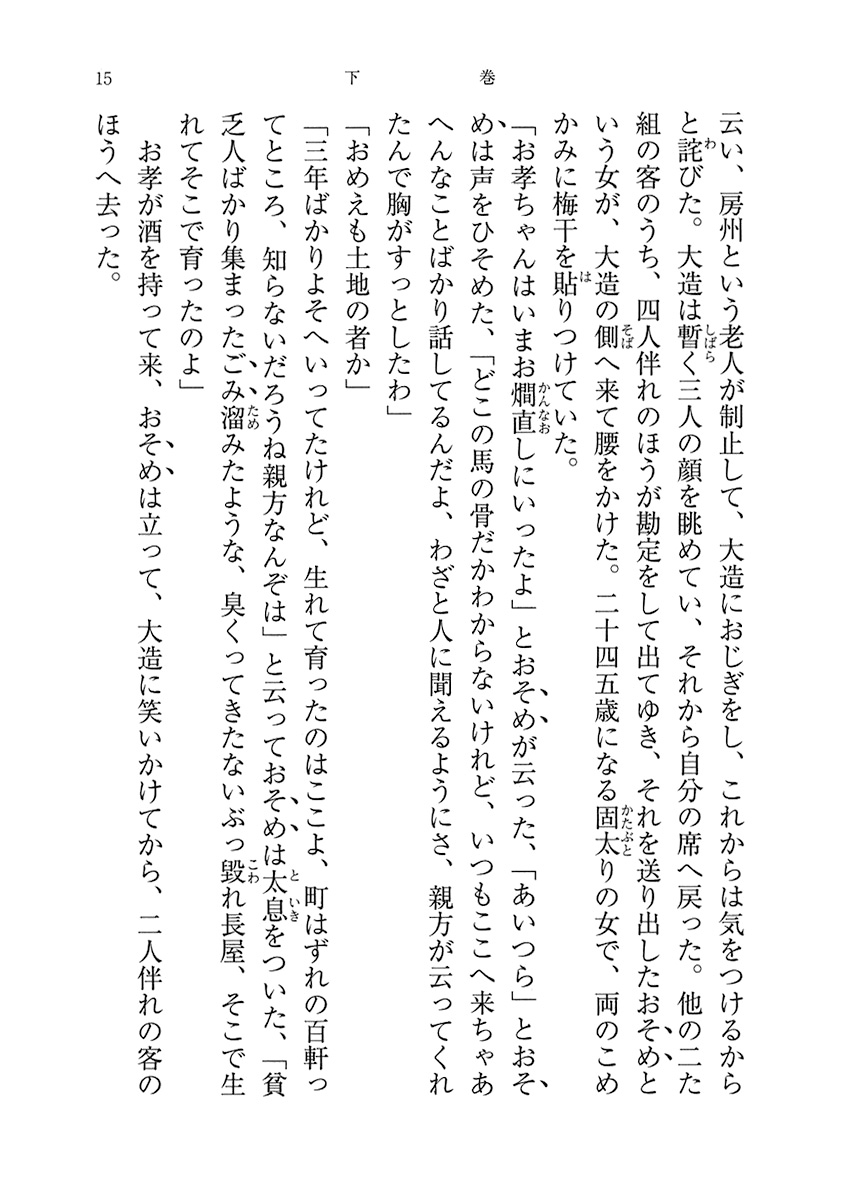 15
下巻
云い、房州という老人が制止して、大造におじぎをし、これからは気をつけるから
と詫びた。大造は暫く三人の顔を眺めてい、それから自分の席へ戻った。他の二た
組の客のうち、四人伴れのほうが勘定をして出てゆき、それを送り出したおそめと
いう女が、大造の側へ来て腰をかけた。二十四五歳になる固太りの女で、両のこめ
かみに梅干を貼りつけていた。
「お孝ちゃんはいまお燗直しにいったよ」とおそめが云った、「あいつら」とおそ
めは声をひそめた、「どこの馬の骨だかわからないけれど、いつもここへ来ちゃあ
へんなことばかり話してるんだよ、わざと人に聞えるようにさ、親方が云ってくれ
たんで胸がすっとしたわ」
「おめえも土地の者か」
「三年ばかりよそへいってたけれど、生れて育ったのはここよ、町はずれの百軒っ
てところ、知らないだろうね親方なんぞは」と云っておそめは太息をついた、「貧
乏人ばかり集まったごみ溜みたような、臭くってきたないぶっ毀れ長屋、そこで生
れてそこで育ったのよ」
お孝が酒を持って来、おそめは立って、大造に笑いかけてから、二人伴れの客の
ほうへ去った。